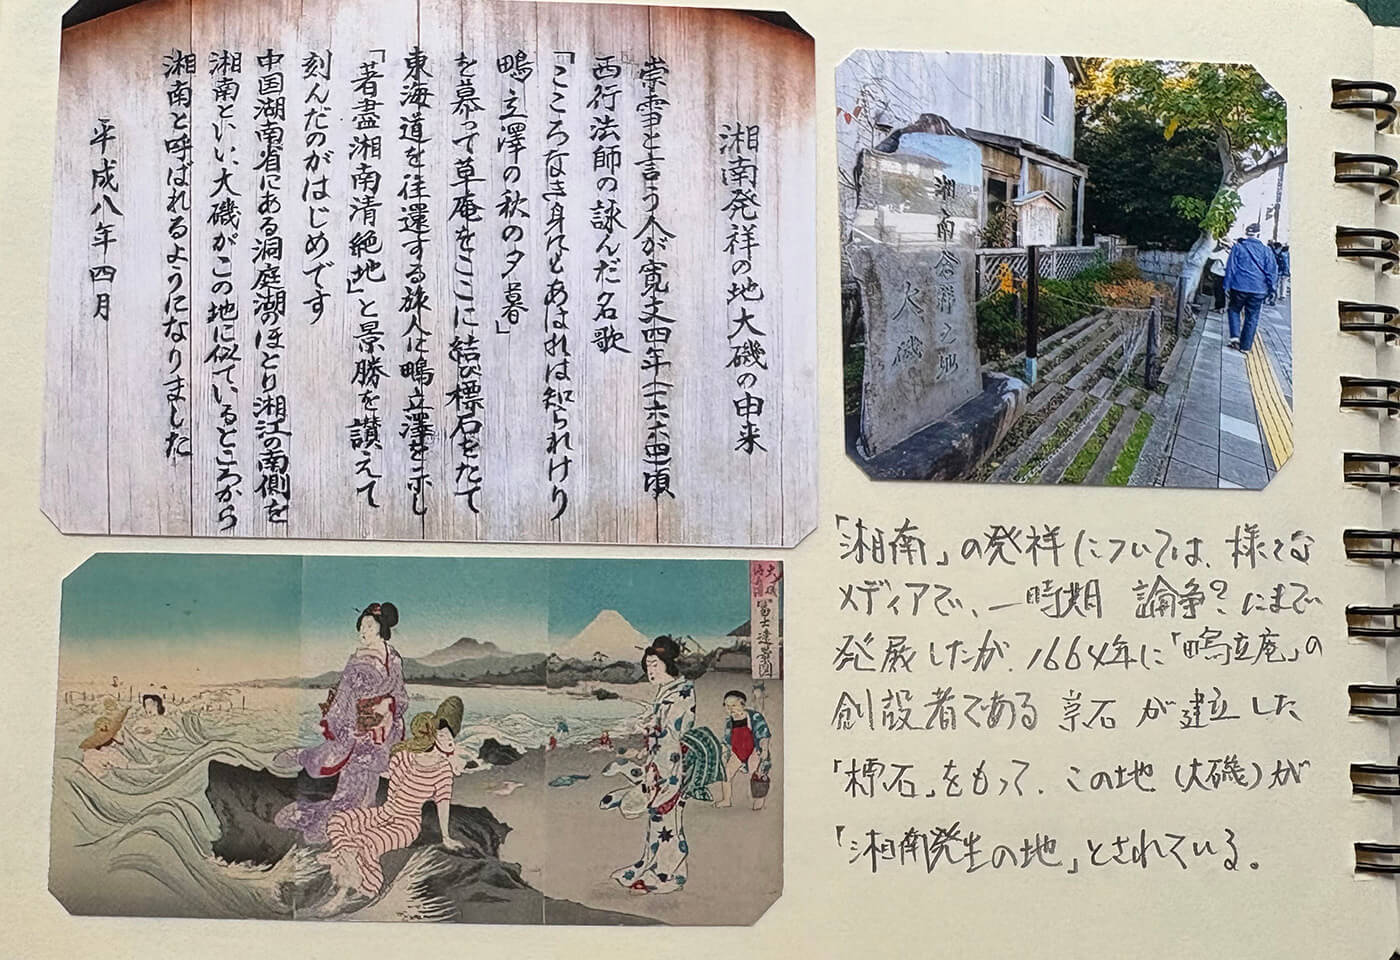 湘南発祥の地大磯の由来
崇雪と言う人が寛文四年(一六六四)頃
西行法師の詠んだ名歌
「こころなき身にもあはれは知られけり
鴫立澤の秋の夕暮」
を慕って草庵をここに結び標石をたて
東海道を往還する旅人に鴫立澤を示し
「著盡湘南清絶地」と景勝を讃えて
刻んだのがはじめです
中国湖南省にある洞庭湖のほとり湘江の南側を
湘南といい大磯がこの地に似ているところから
湘南と呼ばれるようになりました
平成八年四月
湘南発祥之地
大磯
大磯
富士遠景図
「湘南」の発祥については、様々な
メディアで、一時期 論争?にまで
発展したが、1664年に「鴫立庵」の
創設者である 崇石 が建立した
「標石」をもって、この地(大磯)が
「湘南発生の地」とされている。